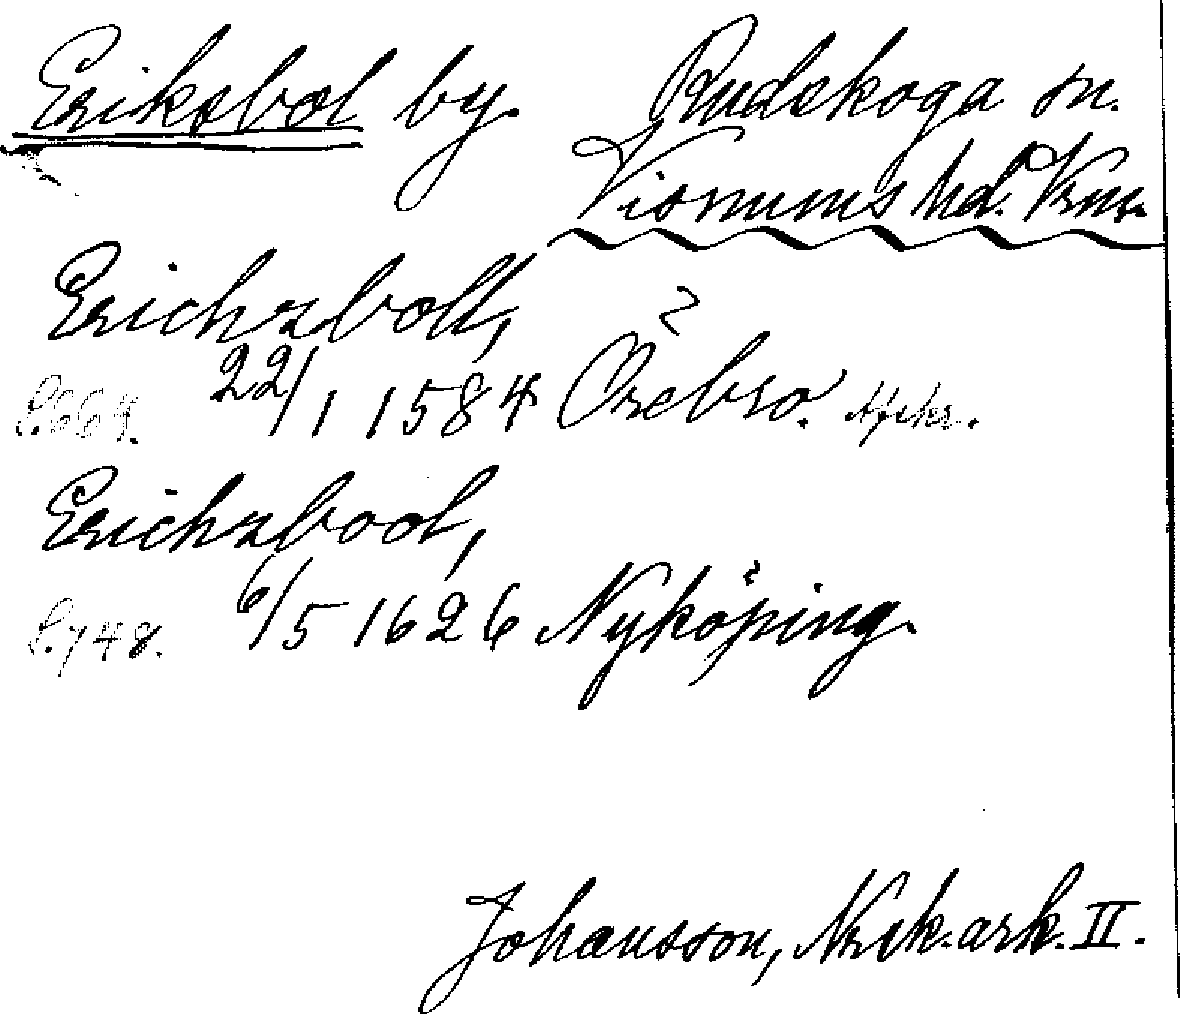 Eriksbol by. Rudskoga sn.
Visnums hd. Vrm.
Erichzboll,
S.664. 22/1 1584 Örebro. Afskr.
Erichzbool,
S.748. 6/5 1626 Nyköping.
Johansson, Nor.k.ark. II.